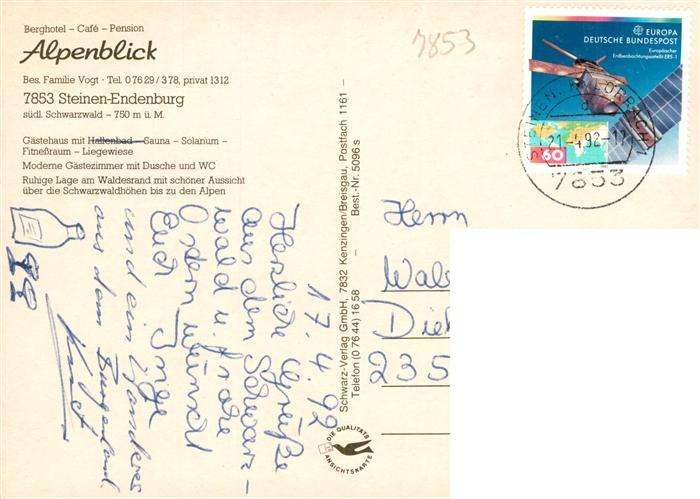 Berghotel – Café – Pension
Alpenblick
Bes. Familie Vogt · Tel. 0 76 29 / 3 78, privat 1312
7853 Steinen-Endenburg
südl. Schwarzwald – 750 m ü. M.
Gästehaus mit Hallenbad – Sauna – Solarium –
Fitneßraum – Liegewiese
Moderne Gästezimmer mit Dusche und WC
Ruhige Lage am Waldesrand mit schöner Aussicht
über die Schwarzwaldhöhen bis zu den Alpen
17.4.92
Herzliche Grüße
aus dem Schwarz-
wald u. frohe
Ostern wünscht
Euch Inge
und ein
aus dem Burgenland
Schwarz-Verlag GmbH, 7832 Kenzingen/Breisgau, Postfach 1161 –
Telefon (0 76 44) 16 58 – Best.-Nr. 5096 s
DIE QUALITÄTS
ANSICHTSKARTE
7853
EUROPA
DEUTSCHE BUNDESPOST
Europäischer
Erdbeobachtungssatellit ERS-1
60
21.-4.92-17
7853
Herrn
Wal
Die
235